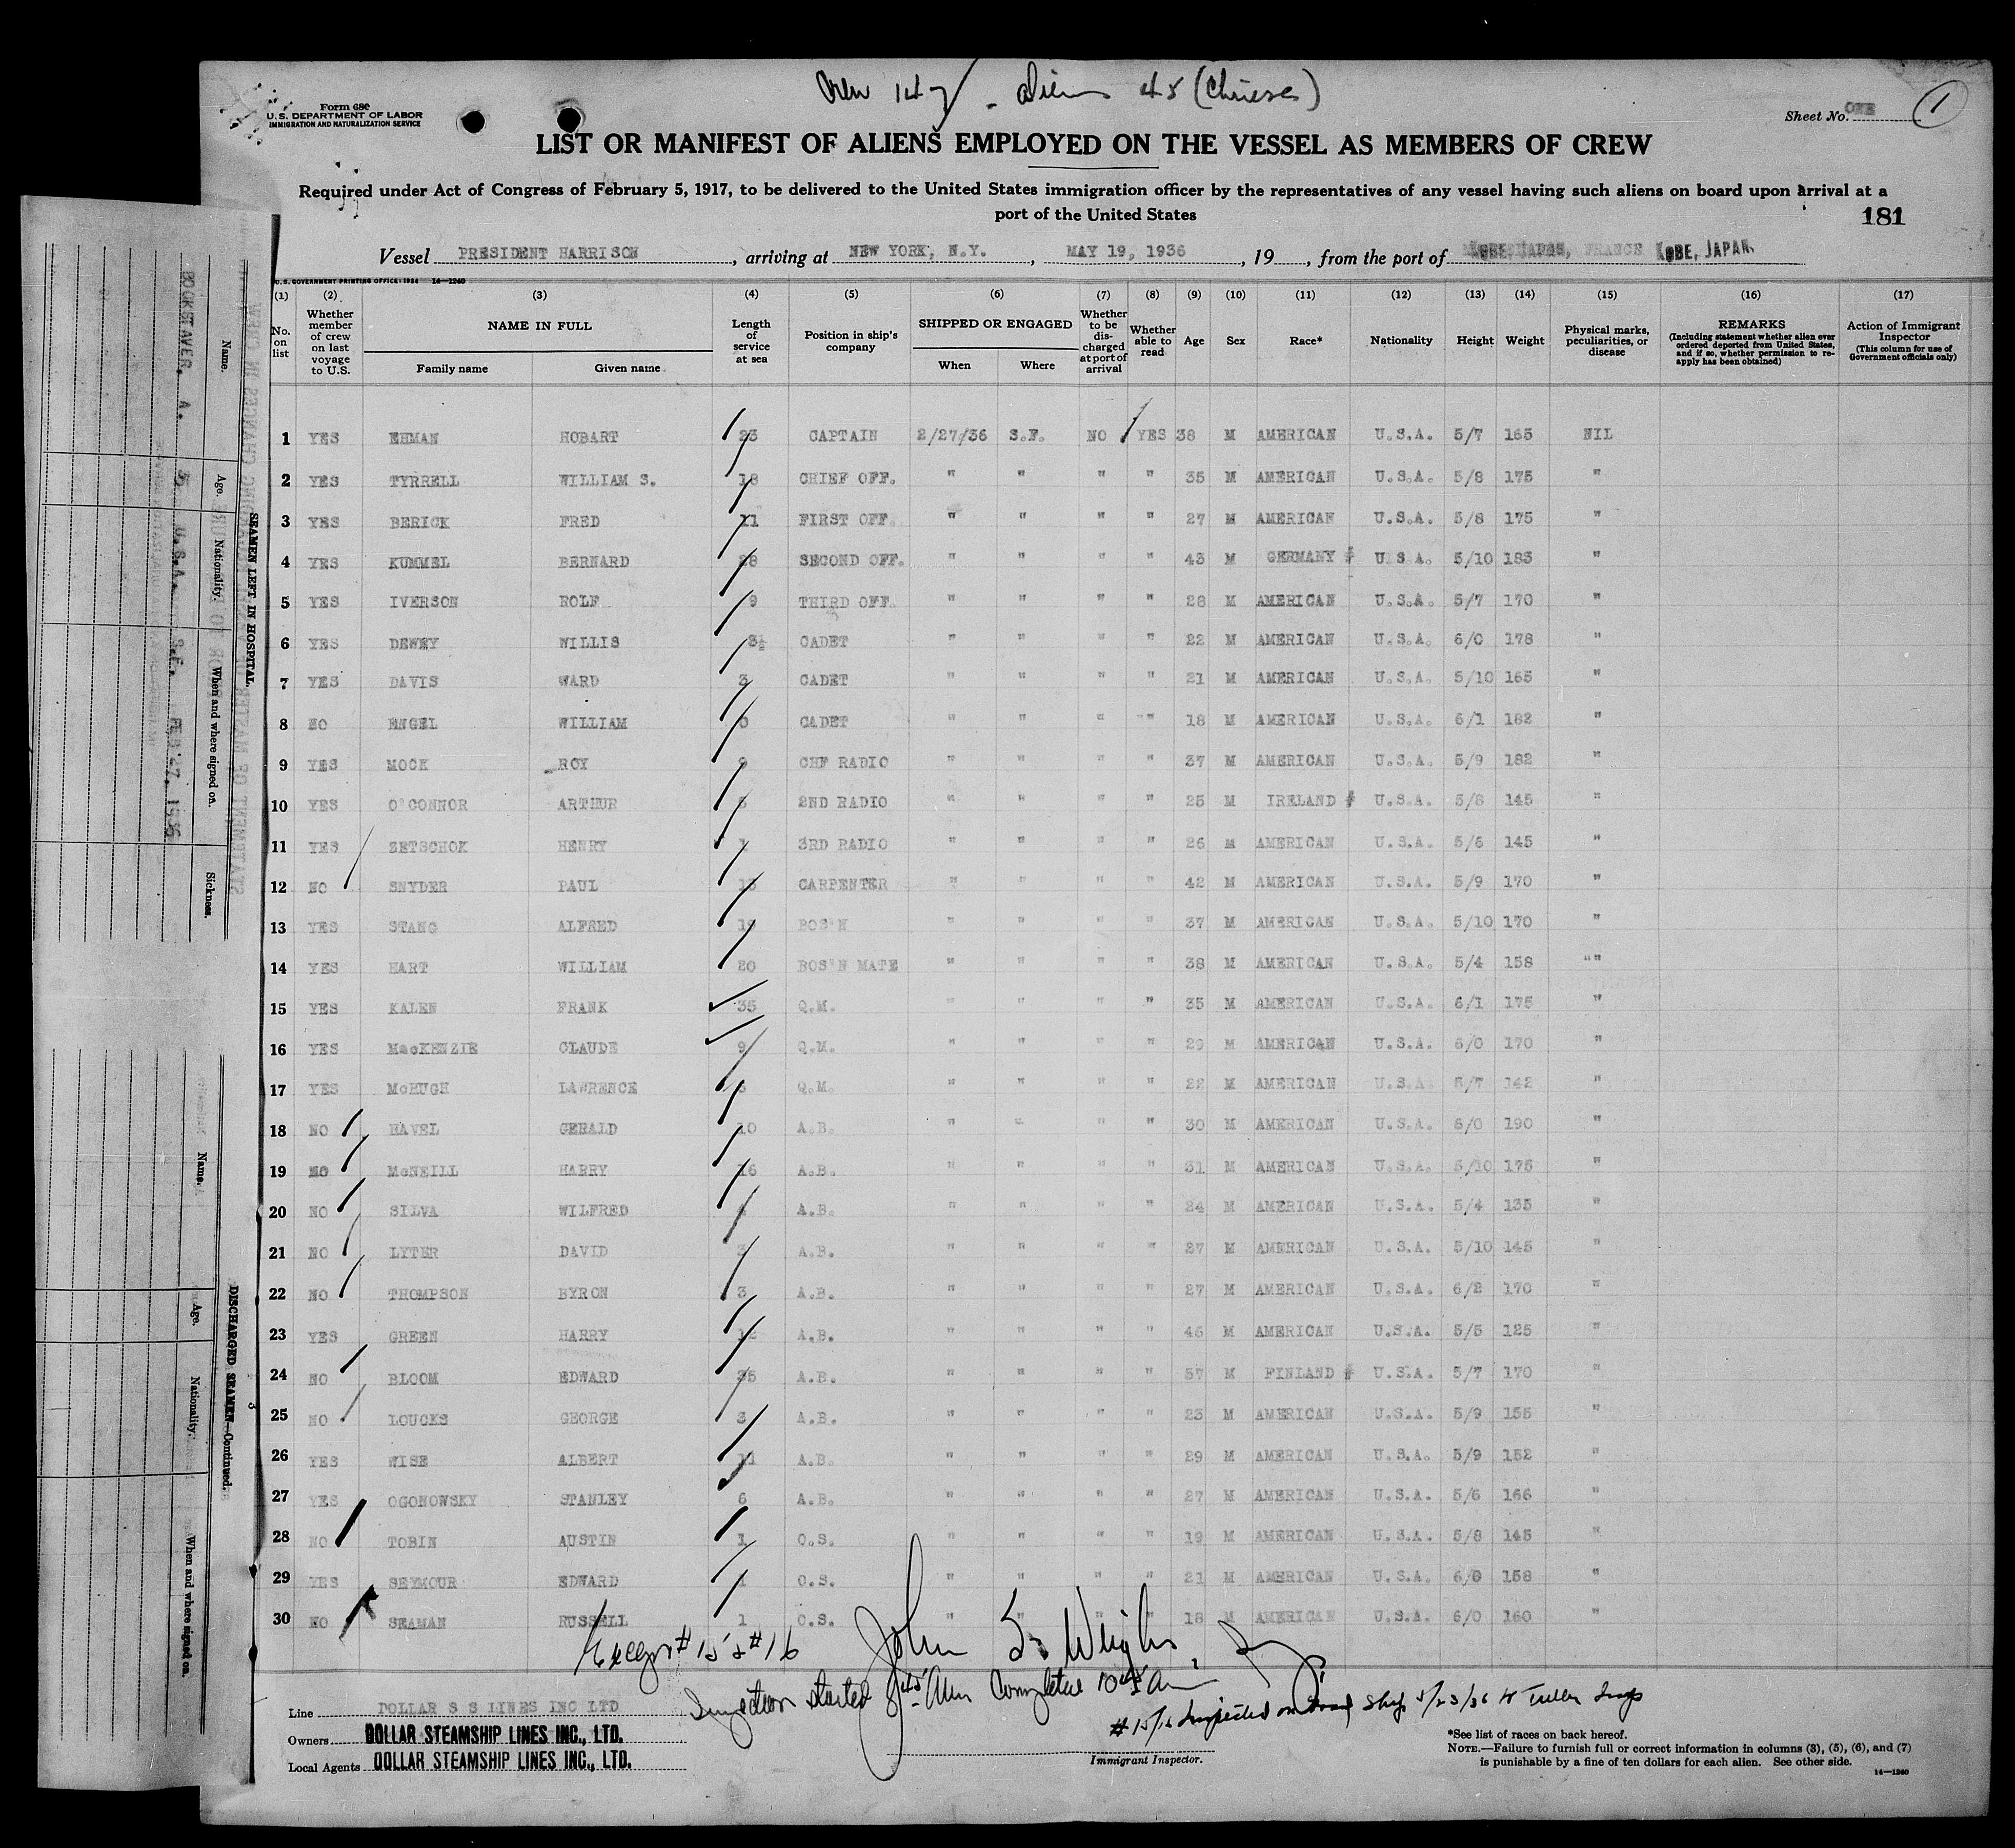 Crew 147 - Aliens 45 (Chinese)
Form 680
U.S. DEPARTMENT OF LABOR
IMMIGRATION AND NATURALIZATION SERVICE
Sheet No. ONE 1
LIST OR MANIFEST OF ALIENS EMPLOYED ON THE VESSEL AS MEMBERS OF CREW
Required under Act of Congress of February 5, 1917, to be delivered to the United States immigration officer by the representatives of any vessel having such aliens on board upon arrival at a
port of the United States
181
Vessel PRESIDENT HARRISON, arriving at NEW YORK, N.Y., MAY 19, 1936, 19, from the port of FRANCE KOBE, JAPAN.
U.S. GOVERNMENT PRINTING OFFICE: 1934 14-1240
(1) (2) (3) (4) (5) (6) (7) (8) (9) (10) (11) (12) (13) (14) (15) (16) (17)
No. on list
Whether member of crew on last voyage to U.S.
NAME IN FULL
Family name Given name
Length of service at sea
Position in ship's company
SHIPPED OR ENGAGED
When Where
Whether to be discharged at port of arrival
Whether able to read
Age
Sex
Race*
Nationality
Height
Weight
Physical marks, peculiarities, or disease
REMARKS
(Including statement whether alien ever ordered deported from United States, and if so, whether permission to reapply has been obtained)
Action of Immigrant Inspector
(This column for use of Government officials only)
1 YES EHMAN HOBART 23 CAPTAIN 2/27/36 S.F. NO YES 38 M AMERICAN U.S.A. 5/7 165 NIL
2 YES TYRRELL WILLIAM S. 18 CHIEF OFF. " " " " 35 M AMERICAN U.S.A. 5/8 175 "
3 YES BERICK FRED 11 FIRST OFF. " " " " 27 M AMERICAN U.S.A. 5/8 175 "
4 YES KUMMEL BERNARD 28 SECOND OFF. " " " " 43 M GERMANY # U S A. 5/10 183 "
5 YES IVERSON ROLF 9 THIRD OFF. " " " " 28 M AMERICAN U.S.A. 5/7 170 "
6 YES DEWEY WILLIS 3½ CADET " " " " 22 M AMERICAN U.S.A. 6/0 178 "
7 YES DAVIS WARD 3 CADET " " " " 21 M AMERICAN U.S.A. 5/10 165 "
8 NO ENGEL WILLIAM 0 CADET " " " "" 18 M AMERICAN U.S.A. 6/1 182 "
9 YES MOCK ROY 9 CHF RADIO " " " " 37 M AMERICAN U.S.A. 5/9 182 "
10 YES O'CONNOR ARTHUR 2ND RADIO " " " " 25 M IRELAND # U.S.A. 5/8 145 "
11 YES ZETSCHOK HENRY 3RD RADIO " " " " 26 M AMERICAN U.S.A. 5/6 145 "
12 NO SNYDER PAUL 13 CARPENTER " " " " 42 M AMERICAN U.S.A. 5/9 170 "
13 YES STANG ALFRED 19 BOS'N " " " " 37 M AMERICAN U.S.A. 5/10 170 "
14 YES HART WILLIAM 20 BOS'N MATE " " " " 38 M AMERICAN U.S.A. 5/4 158 ""
15 YES KALEN FRANK 35 Q.M. " " " " 35 M AMERICAN U.S.A. 6/1 175 "
16 YES MacKENZIE CLAUDE 9 Q.M. " " " " 29 M AMERICAN U.S.A. 6/0 170 "
17 YES McHUGH LAWRENCE Q.M. " " " " 22 M AMERICAN U.S.A. 5/7 142 "
18 NO HAVEL GERALD 10 A.B. " " " " 30 M AMERICAN U.S.A. 190 "
19 NO McNEILL HARRY 16 A.B. " " " " 31 M AMERICAN U.S.A. 5/10 175 "
20 NO SILVA WILFRED A.B. " " " " 24 M AMERICAN U.S.A. 5/4 135 "
21 NO LYTER DAVID A.B. " " " " 27 M AMERICAN U.S.A. 5/10 145 "
22 NO THOMPSON BYRON 3 A.B. " " " " 27 M AMERICAN U.S.A. 6/2 170 "
23 YES GREEN HARRY 12 A.B. " " " " 45 M AMERICAN U.S.A. 5/5 125 "
24 NO BLOOM EDWARD 35 A.B. " " " " 57 M FINLAND # U.S.A. 5/7 170 "
25 NO LOUCKS GEORGE 3 A.B. " " " " 23 M AMERICAN U.S.A. 5/9 155 "
26 YES WISE ALBERT 11 A.B. " " " " 29 M AMERICAN U.S.A. 5/9 152 "
27 YES OGONOWSKY STANLEY 6 A.B. " " " " 27 M AMERICAN U.S.A. 5/6 166 "
28 NO TOBIN AUSTIN 1 O.S. " " " " 19 M AMERICAN U.S.A. 5/8 145 "
29 YES SEYMOUR EDWARD 1 O.S. " " " " 21 M AMERICAN U.S.A. 6/0 158 "
30 NO SEAMAN RUSSELL 1 O.S. " " " " 18 M AMERICAN U.S.A. 6/0 160 "
Except #15 & #16
John S. Wright
Inspection started 8 45 AM Completed 10 45 AM
#15/16 Inspected on board ship 5/23/36
Line DOLLAR S S LINES INC LTD
Owners DOLLAR STEAMSHIP LINES INC., LTD.
Local Agents DOLLAR STEAMSHIP LINES INC., LTD.
Immigrant Inspector.
*See list of races on back hereof.
NOTE.—Failure to furnish full or correct information in columns (3), (5), (6), and (7)
is punishable by a fine of ten dollars for each alien. See other side.
14-1240
SEAMEN LEFT IN HOSPITAL
Name. Age. Nationality. When and where signed on. Sickness.
BOCKSTAVER, A. U.S.A. S.F. FEB 27, 1936
DISCHARGED SEAMEN—Continued.
Name. Age. Nationality. When and where signed on.
3